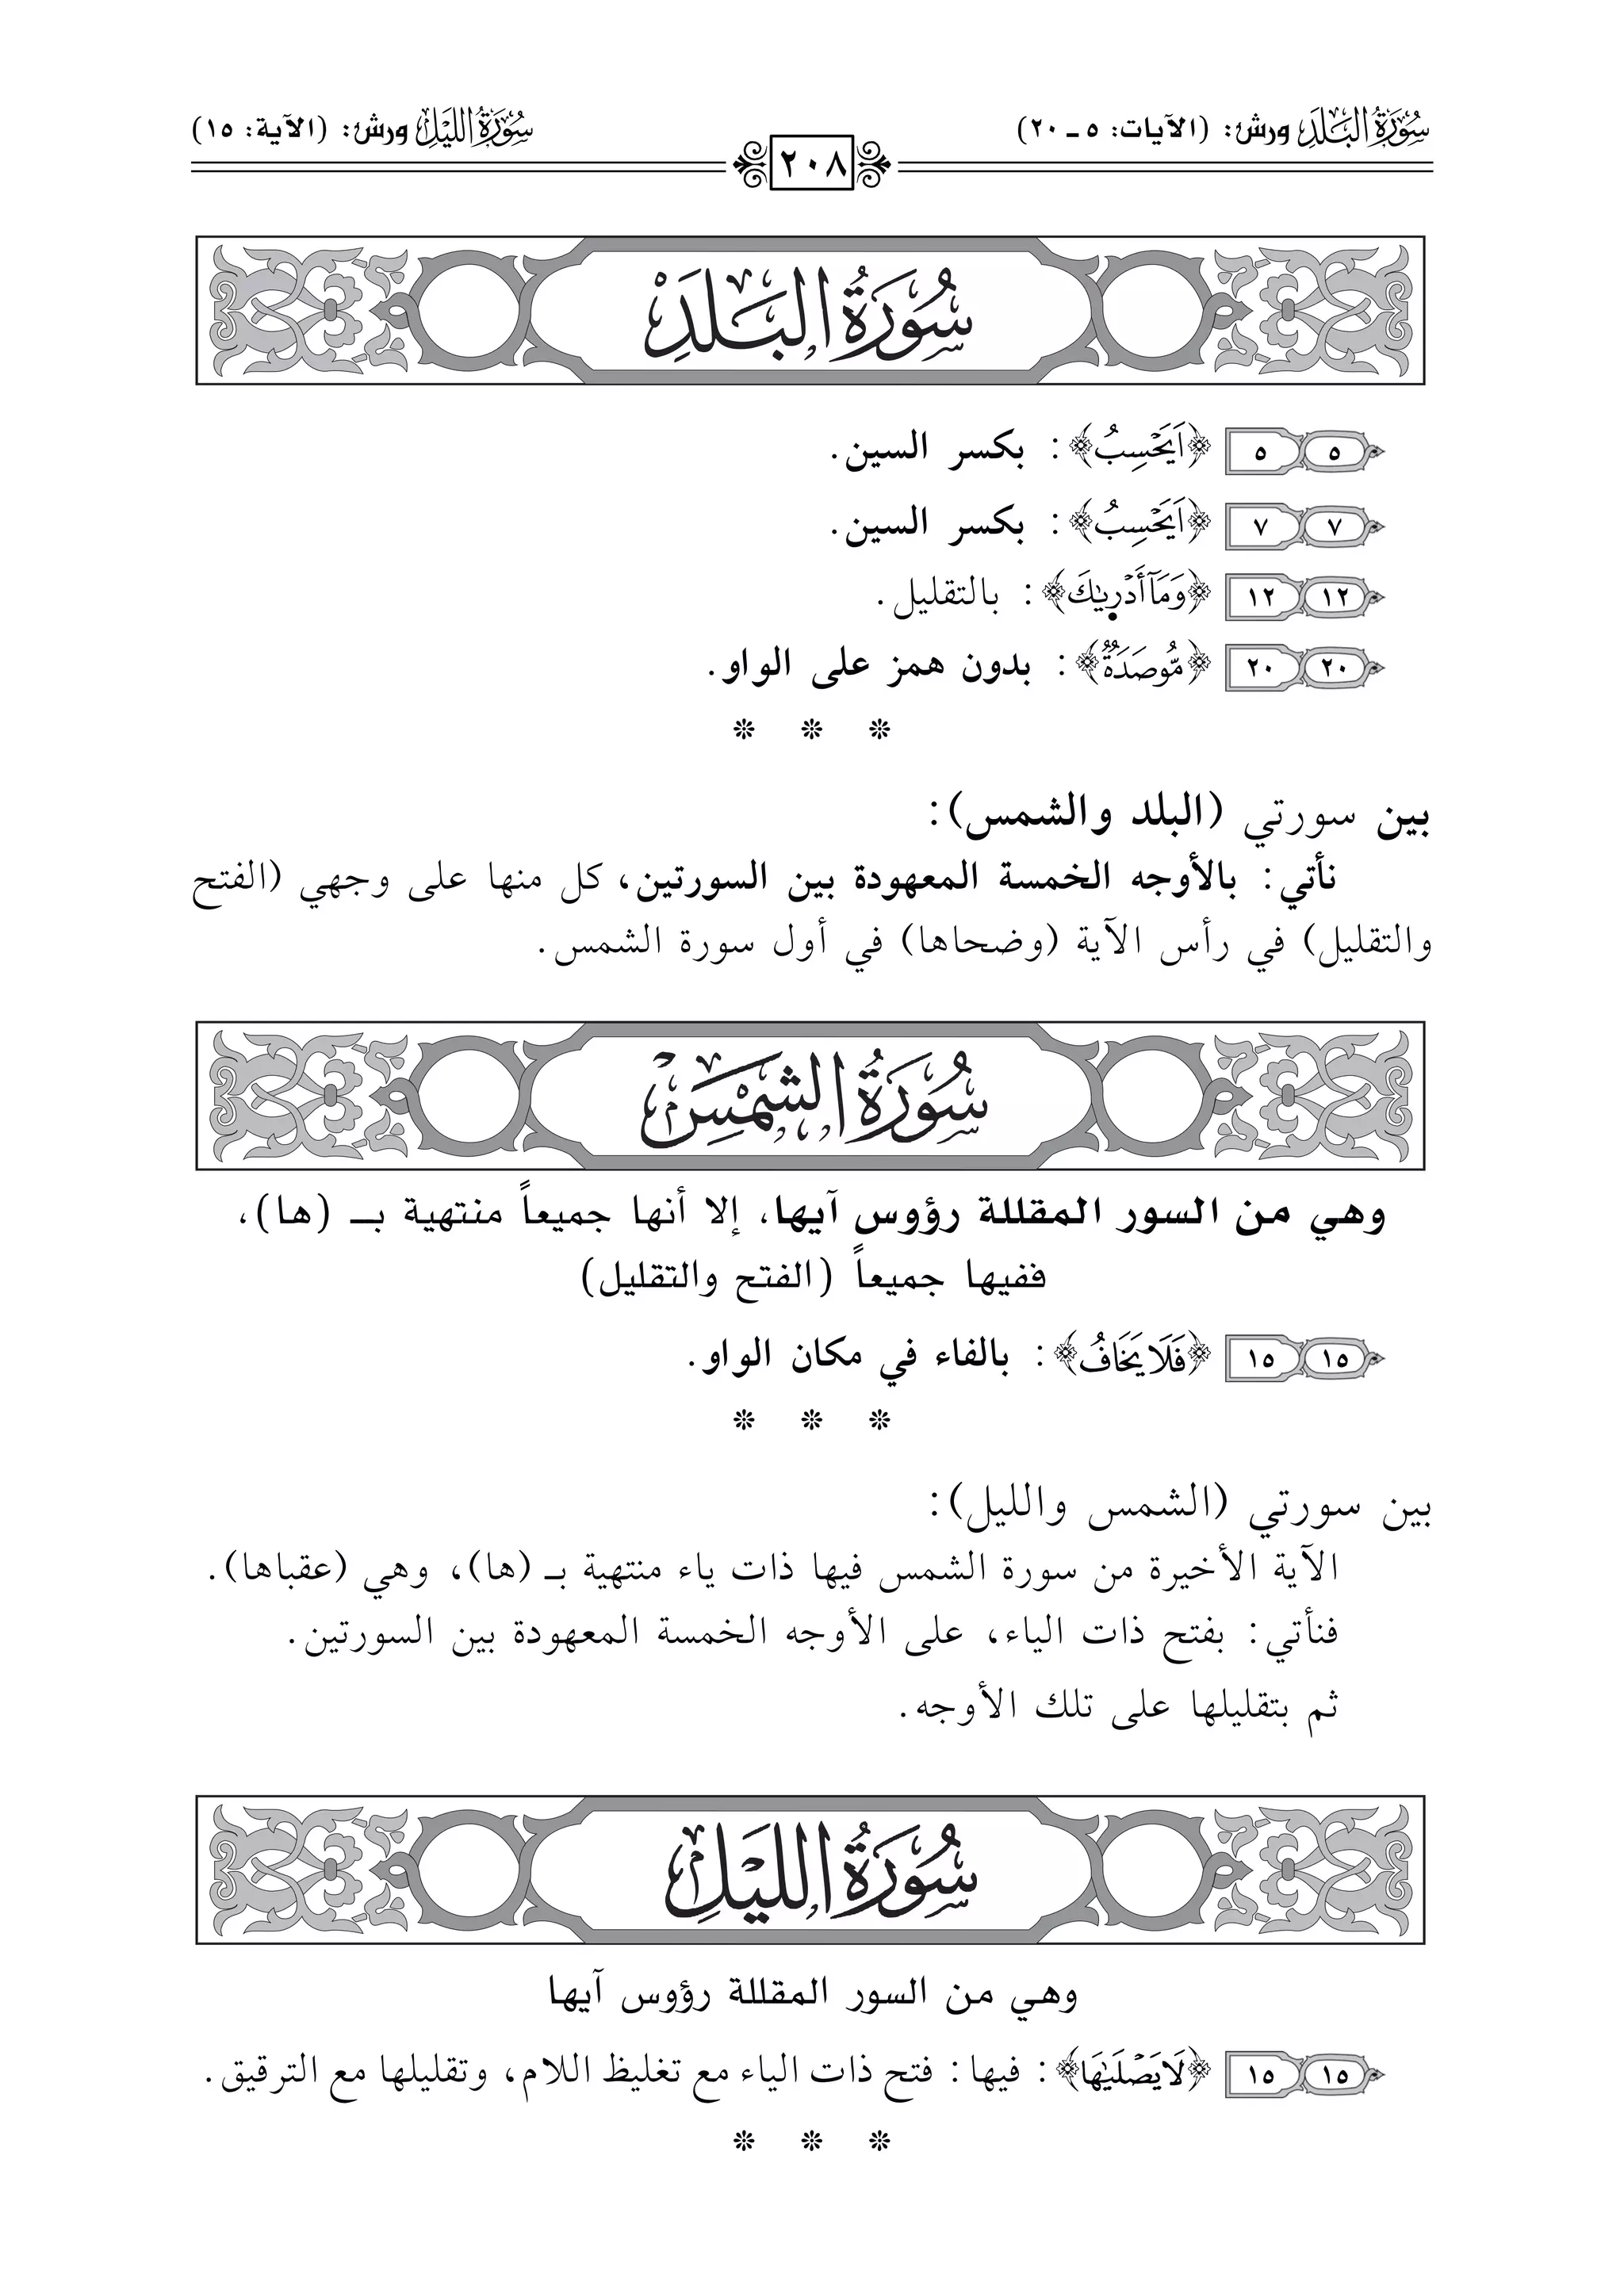 سُورَةُ البَلَدِ ورش: (الآيات: ٥ ـ ٢٠)
سُورَةُ اللَّيْلِ ورش: (الآية: ١٥)
٢٠٨
سُورَةُ البَلَدِ
٥ ٥ ﴿اَيَحْسِبُ﴾: بكسر السين.
٧ ٧ ﴿اَيَحْسِبُ﴾: بكسر السين.
١٢ ١٢ ﴿وَمَآ أَدْر۪ىٰكَ﴾: بالتقليل.
٢٠ ٢٠ ﴿مُّوصَدَةٌ﴾: بدون همز على الواو.
* * *
بين سورتي (البلد والشمس):
نأتي: بالأوجه الخمسة المعهودة بين السورتين، كل منها على وجهي (الفتح
والتقليل) في رأس الآية (وضحاها) في أول سورة الشمس.
سُورَةُ الشَّمْسِ
وهي من السور المقللة رؤوس آيها، إلا أنها جميعاً منتهية بـ (ها)،
ففيها جميعاً (الفتح والتقليل)
١٥ ١٥ ﴿فَلَا يَخَافُ﴾: بالفاء في مكان الواو.
* * *
بين سورتي (الشمس والليل):
الآية الأخيرة من سورة الشمس فيها ذات ياء منتهية بـ (ها)، وهي (عقباها).
فنأتي: بفتح ذات الياء، على الأوجه الخمسة المعهودة بين السورتين.
ثم بتقليلها على تلك الأوجه.
سُورَةُ اللَّيْلِ
وهي من السور المقللة رؤوس آيها
١٥ ١٥ ﴿لَا يَصْلَىٰهَا﴾: فيها: فتح ذات الياء مع تغليظ اللام، وتقليلها مع الترقيق.
* * *